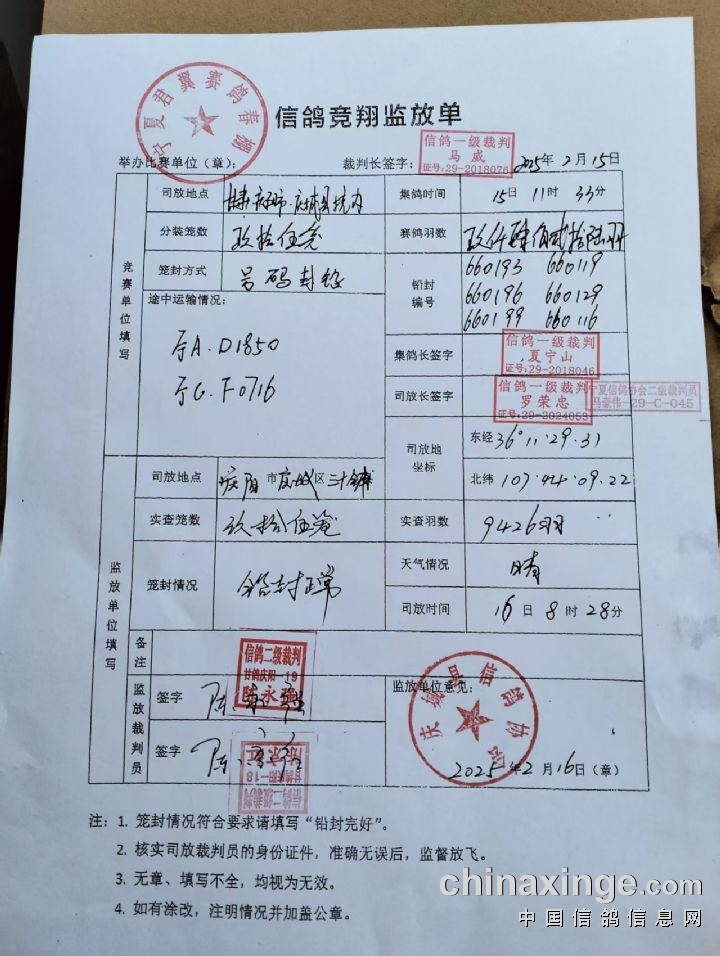 信鸽竞翔监放单
宁夏君翼赛鸽春棚
举办比赛单位（章）： 裁判长签字： 2025年2月15日
信鸽一级裁判
马威
证号:29-2018076
竞赛单位填写
司放地点 甘肃 庆阳市·庆城县境内 集鸽时间 15日11时33分
分装笼数 玖拾伍笼 赛鸽羽数 玖仟肆佰贰拾陆羽
笼封方式 号码封铅 铅封编号 660193 660119
660196 660129
660199 660116
途中运输情况：
宁A.D1850
宁G.F0716
集鸽长签字 信鸽一级裁判
夏宁山
证号:29-2018046
司放长签字 信鸽一级裁判
罗荣忠
证号:29-2024053
宁夏信鸽协会二级裁判员
马豪伟-29-C-045
司放地坐标 东经36°11·29·31
北纬107·44·09·22
监放单位填写
司放地点 庆阳市庆城区三十铺
实查笼数 玖拾伍笼 实查羽数 9426羽
笼封情况 铅封正常 天气情况 晴
司放时间 16日8时28分
备注
信鸽二级裁判
甘鸽庆阳-19
陈永强
监放裁判员
签字
签字
信鸽二级裁判
甘鸽庆阳-18
监放单位意见：
庆城县信鸽协会
2025年2月16日（章）
注：1. 笼封情况符合要求请填写“铅封完好”。
2. 核实司放裁判员的身份证件，准确无误后，监督放飞。
3. 无章、填写不全，均视为无效。
4. 如有涂改，注明情况并加盖公章。
chinaxinge.com
中国信鸽信息网